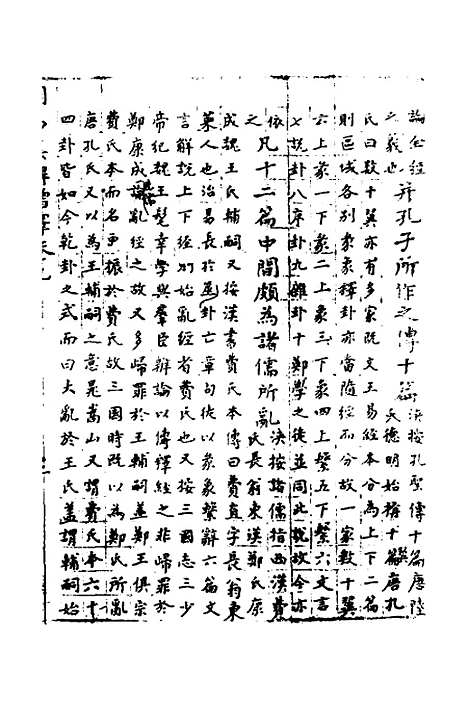 論公經
之義也
并孔子所作之傳十篇
決按孔聖傳十篇唐陸
氏德明始稱十翼唐孔
氏曰數十翼亦有多家既文王易經本分為上下二篇
則區域各別彖象釋卦亦當隨經而分故一家數十翼
云上彖一下彖二上象三下象四上繫五下繫六文言
七說卦八序卦九雜卦十鄭學之徒並同此說故今亦
依
之
凡十二篇中間頗為諸儒所亂
決按諸儒指西漢費
氏長翁東漢鄭氏康
成魏王氏輔嗣又按漢書費氏本傳曰費直字長翁東
萊人也治易長於筮卦亡章句徒以彖象繫辭六篇文
言解說上下經則始亂經者費氏也又按三國志三少
帝紀魏王髦幸學與羣臣辯論以傳繹經之非歸罪於
鄭康成亂經之故又多歸罪於王輔嗣蓋鄭王俱宗
費氏本而名更振於費氏故三國時既以為鄭氏所亂
唐孔氏又以為王輔嗣之意晁嵩山又謂費氏本六十
四卦皆如今乾卦之式而曰大亂於王氏蓋謂輔嗣始